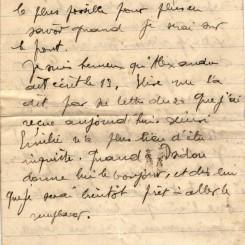 le plus possible pour plus en
savoir quand je serai sur
le pont.
Je suis heureux qu'Alexandre
ait écrit le 13. Elise me l'a
dit par sa lettre du 20 que j'ai
reçue aujourd'hui. Ainsi
Emilie n'a plus lieu d'être
inquiète. Quand
donne lui le bonjour, et dis lui
que je serai bientôt prêt à aller le
remplacer.